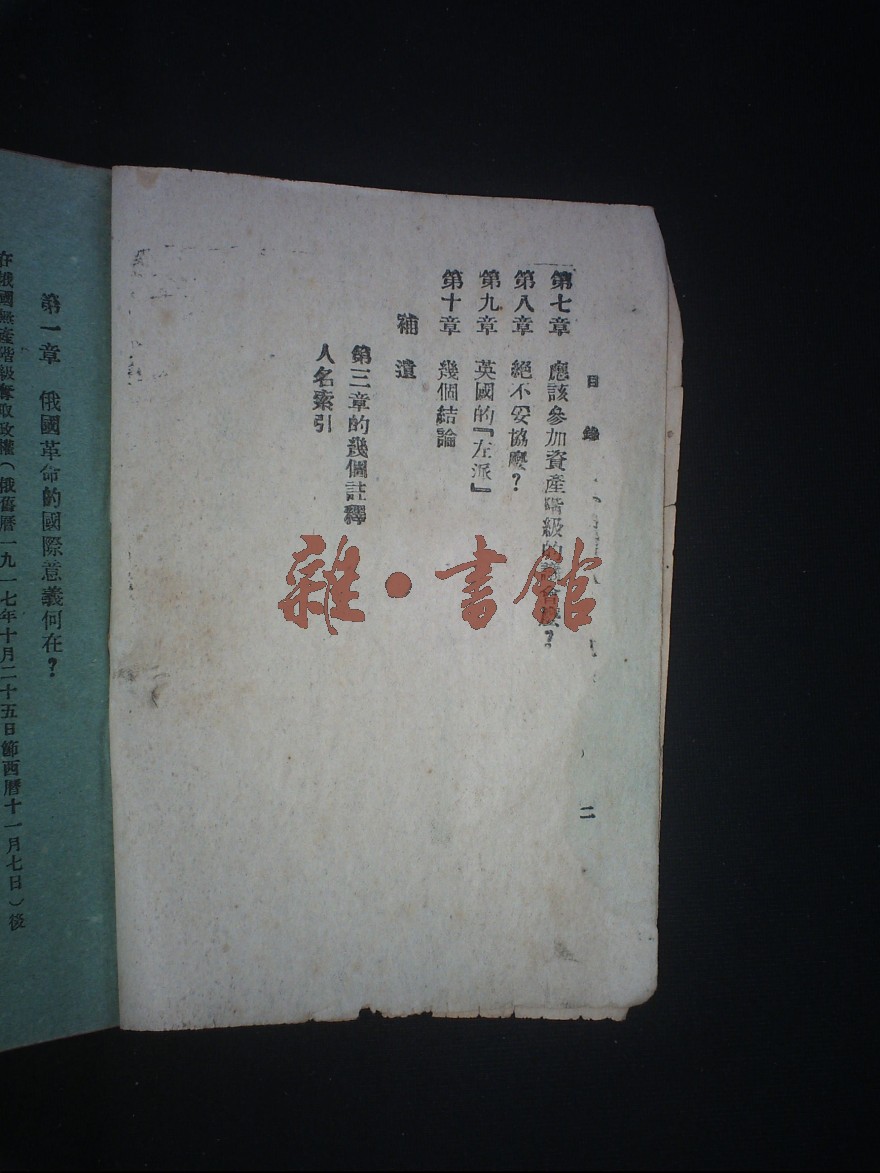 目錄
二
第七章 應該參加資產階級的議會麼?
第八章 絕不妥協麼?
第九章 英國的『左派』
第十章 幾個結論
補遺
第三章的幾個註釋
人名索引
雜·書館
第一章 俄國革命的國際意義何在?
在俄國無產階級奪取政權(俄舊曆一九一七年十月二十五日節西曆十一月七日)後